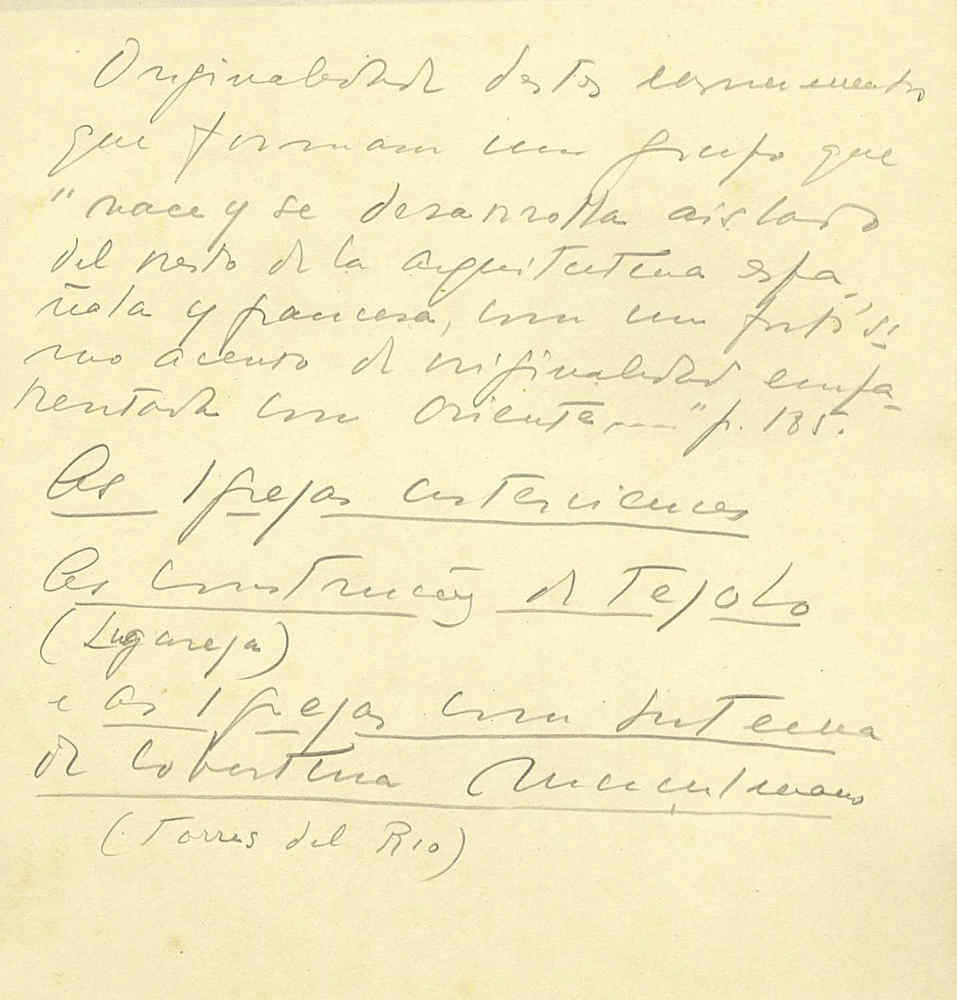 Originalidade destes monumentos
que formam um grupo que
"nace y se desarrolla aislado
del resto de la arquitectura espa-
ñola y francesa, con un fortísi-
mo acento de originalidad empa-
rentada con Oriente, ..." p. 185.
As Igrejas cistercienses
As construções de Tejolo
(Lugareja)
e as Igrejas com sistema
de cobertura Muculmano
(Torres del Rio)